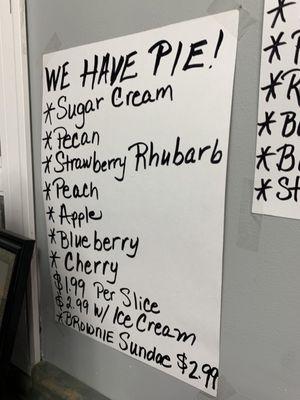 WE HAVE PIE!
* Sugar Cream
* Pecan
* Strawberry Rhubarb
* Peach
* Apple
* Blueberry
* Cherry
$1.99 Per Slice
$2.99 W/ Ice Cream
* BROWNIE Sundae $2.99